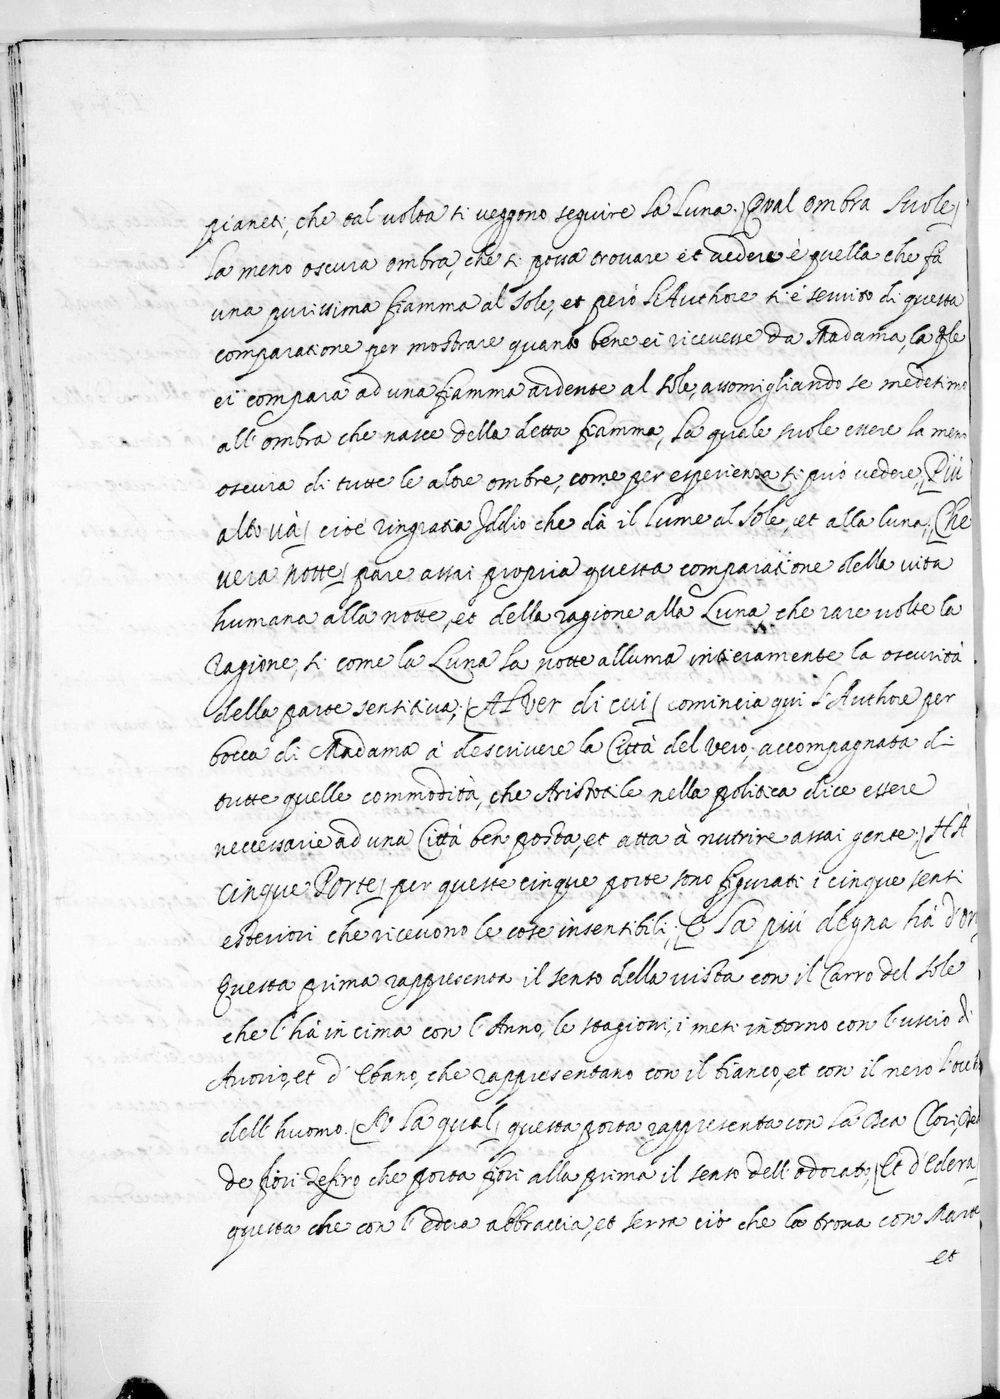 pianeti, che tal volta si veggono seguire la Luna.) Qual ombra suole)
la meno oscura ombra, che si possa trovare et vedere è quella che fà
una purissima fiamma al sole, et però l'Authore si è servito di questa
comparatione per mostrare quanto bene ei ricevesse da Madama, la qle
ei compara ad una fiamma ardente al sole, assomigliando se medesimo
all'ombra che nasce della detta fiamma, la quale suole essere la men
oscura di tutte le altre ombre, come per esperienza si può vedere, (Più
alto và) cioè ringratia Iddio che dà il lume al sole, et alla luna; (Che
vera notte) pare assai propria questa comparatione della vita
humana alla notte, et della ragione alla Luna, che rare volte la
ragione, si come la Luna la notte alluma intieramente la oscurità
della parte sensitiva; (Al ver di cui) comincia qui l'Authore per
bocca di Madama à descrivere la Città del vero, accompagnata di
tutte quelle commodità, che Aristotile nella politica dice essere
neccessarie ad una Città ben posta, et atta à nutrire assai gente.) (HÀ
cinque Porte) per queste cinque porte sono figurati i cinque sensi
esteriori che ricevono le cose insensibili; (E la più degna hà d'or
Questa prima rappresenta il senso della vista con il Carro del sole
che l'hà in cima con l'Anno, le stagioni, i mesi intorno con l'uscio di
Avorio, et d'Ebano, che rappresentano con il bianco, et con il nero l'occhio
dell'huomo. la qual) questa porta rappresenta con la Dea Clori,
de fiori Zefiro che porta fiori alla prima il senso dell'odorato, (Et d'Edera
questa che con l'edera abbraccia, et serra ciò che la trova con Marte
et